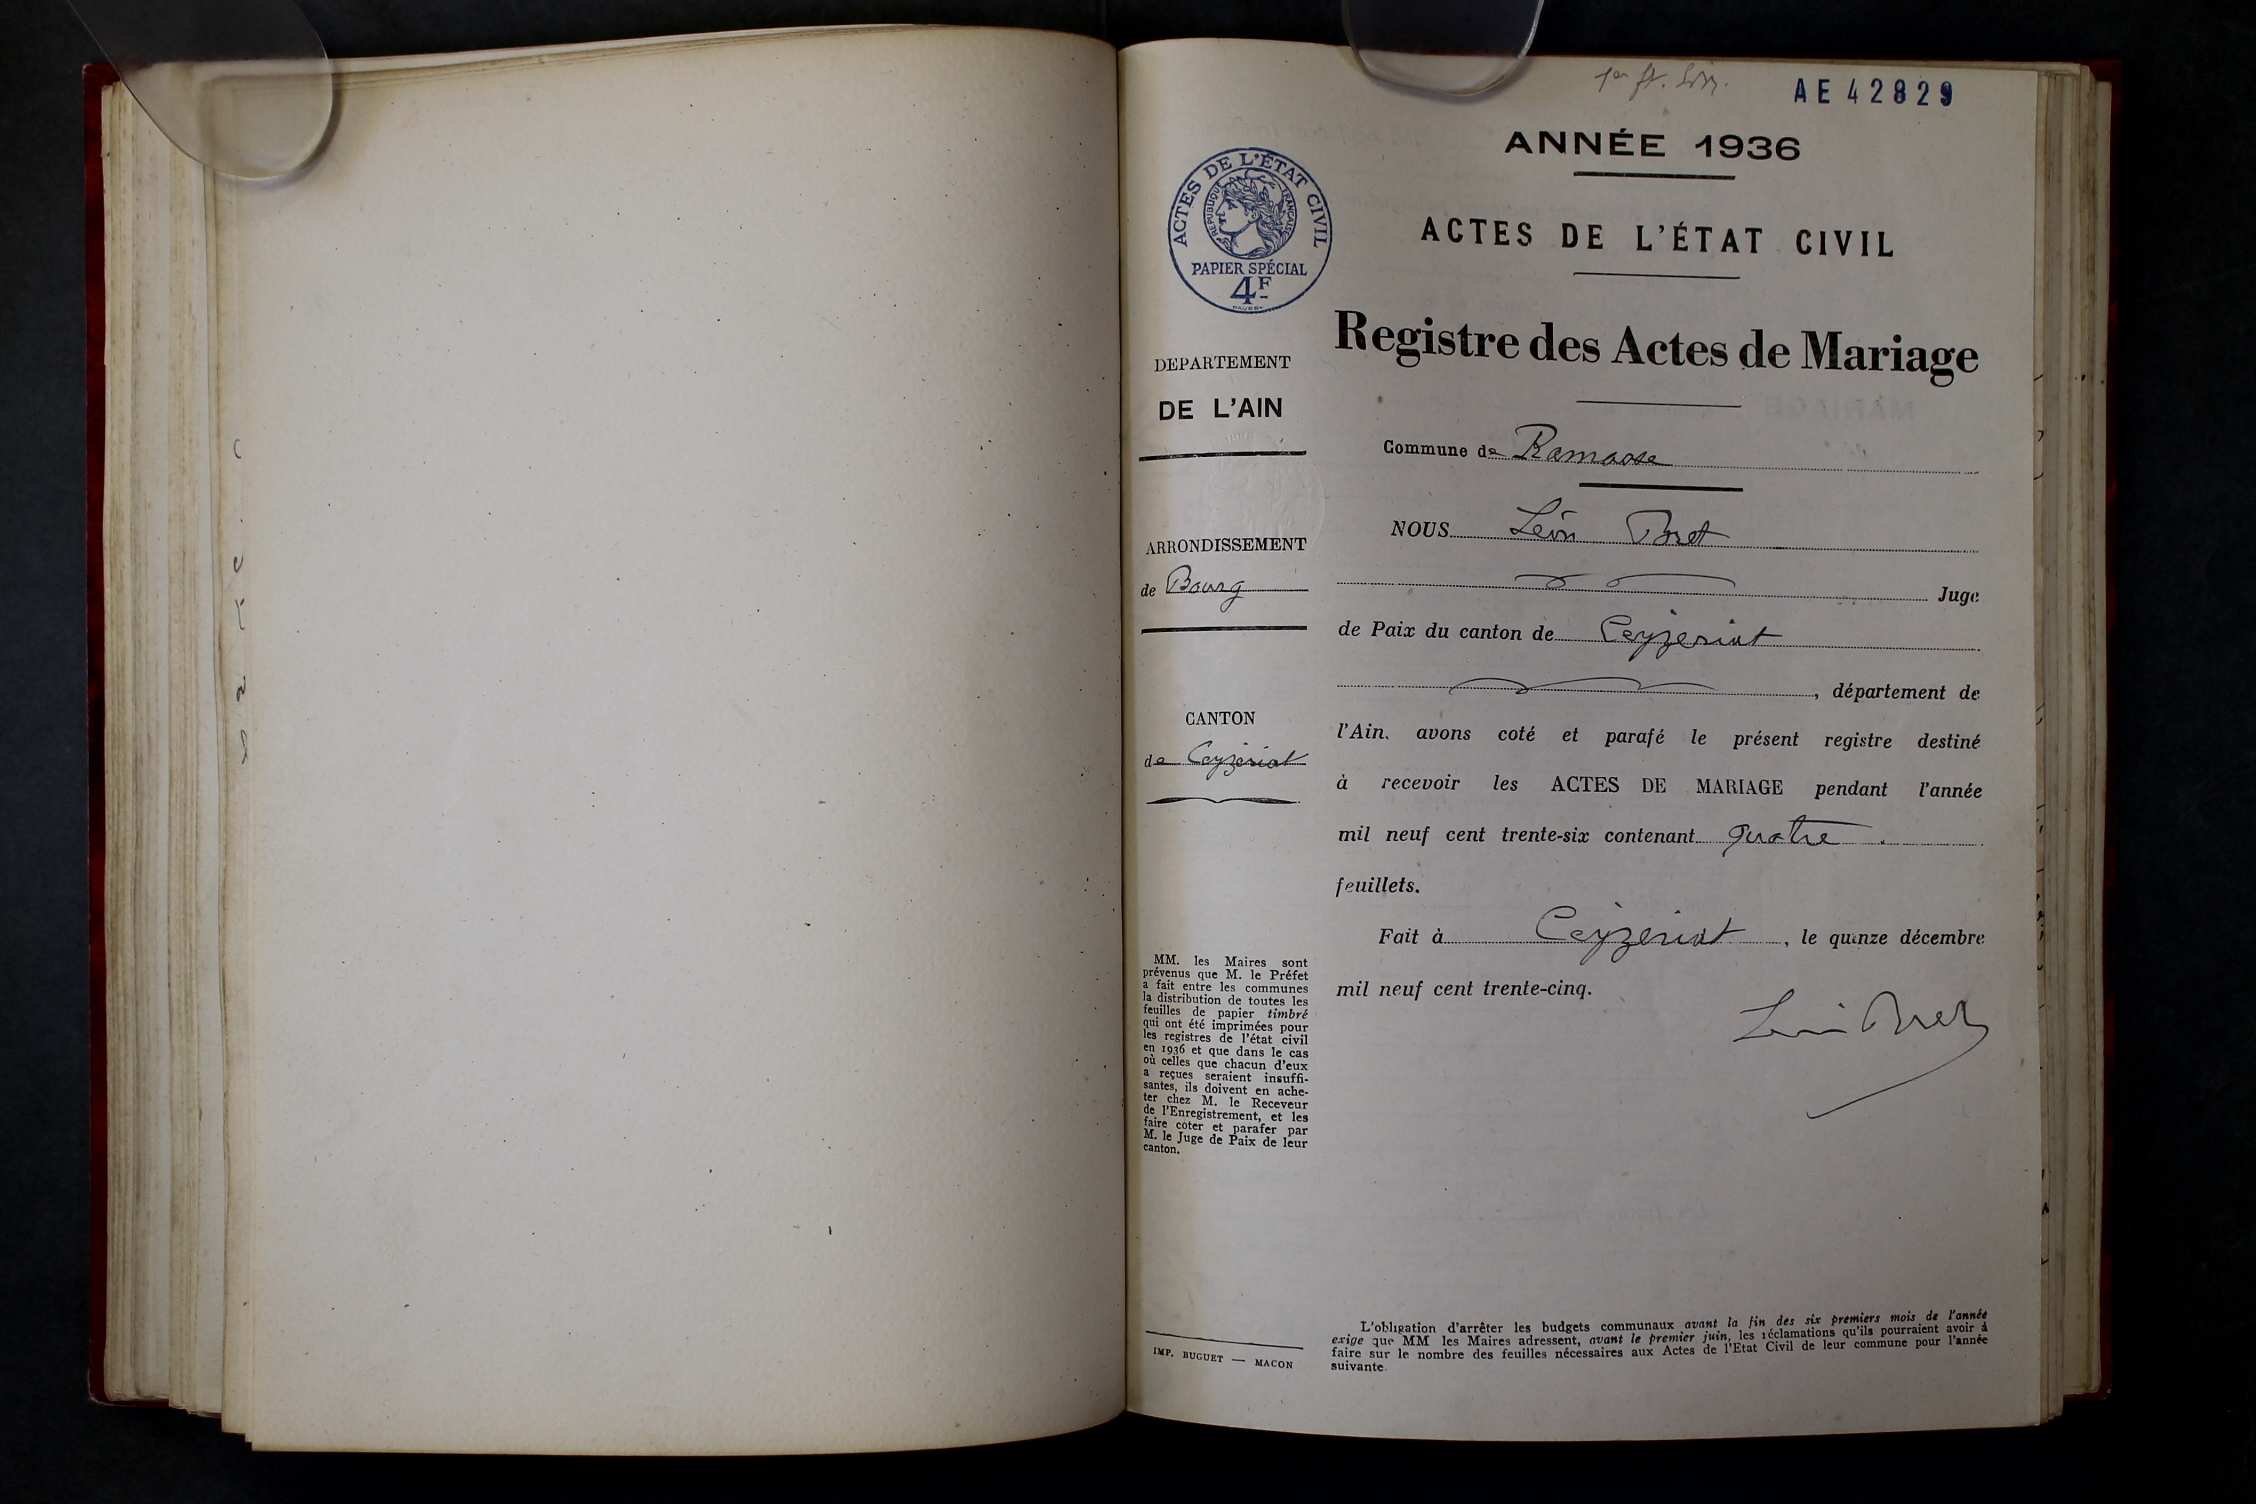 AE 42829
ANNÉE 1936
ACTES DE L'ÉTAT CIVIL
RÉPUBLIQUE FRANÇAISE
PAPIER SPÉCIAL
4F
ACTES DE L'ÉTAT CIVIL
Registre des Actes de Mariage
DEPARTEMENT
DE L'AIN
ARRONDISSEMENT
de Bourg
CANTON
de Ceyzériat
MM. les Maires sont
prévenus que M. le Préfet
a fait entre les communes
la distribution de toutes les
feuilles de papier timbré
qui ont été imprimées pour
les registres de l'état civil
en 1936 et que dans le cas
où celles que chacun d'eux
a reçues seraient insuffi-
santes, ils doivent en ache-
ter chez M. le Receveur
de l'Enregistrement, et les
faire coter et parafer par
M. le Juge de Paix de leur
canton.
IMP. BUGUET — MACON
Commune de Ramasse
NOUS Léon Bret
Juge
de Paix du canton de Ceyzeriat
, département de
l'Ain. avons coté et parafé le présent registre destiné
à recevoir les ACTES DE MARIAGE pendant l'année
mil neuf cent trente-six contenant quatre
feuillets.
Fait à Ceyzeriat, le quinze décembre
mil neuf cent trente-cinq.
Léon Bret
L'obligation d'arrêter les budgets communaux avant la fin des six premiers mois de l'année
exige que MM les Maires adressent, avant le premier juin, les réclamations qu'ils pourraient avoir à
faire sur le nombre des feuilles nécessaires aux Actes de l'Etat Civil de leur commune pour l'année
suivante.